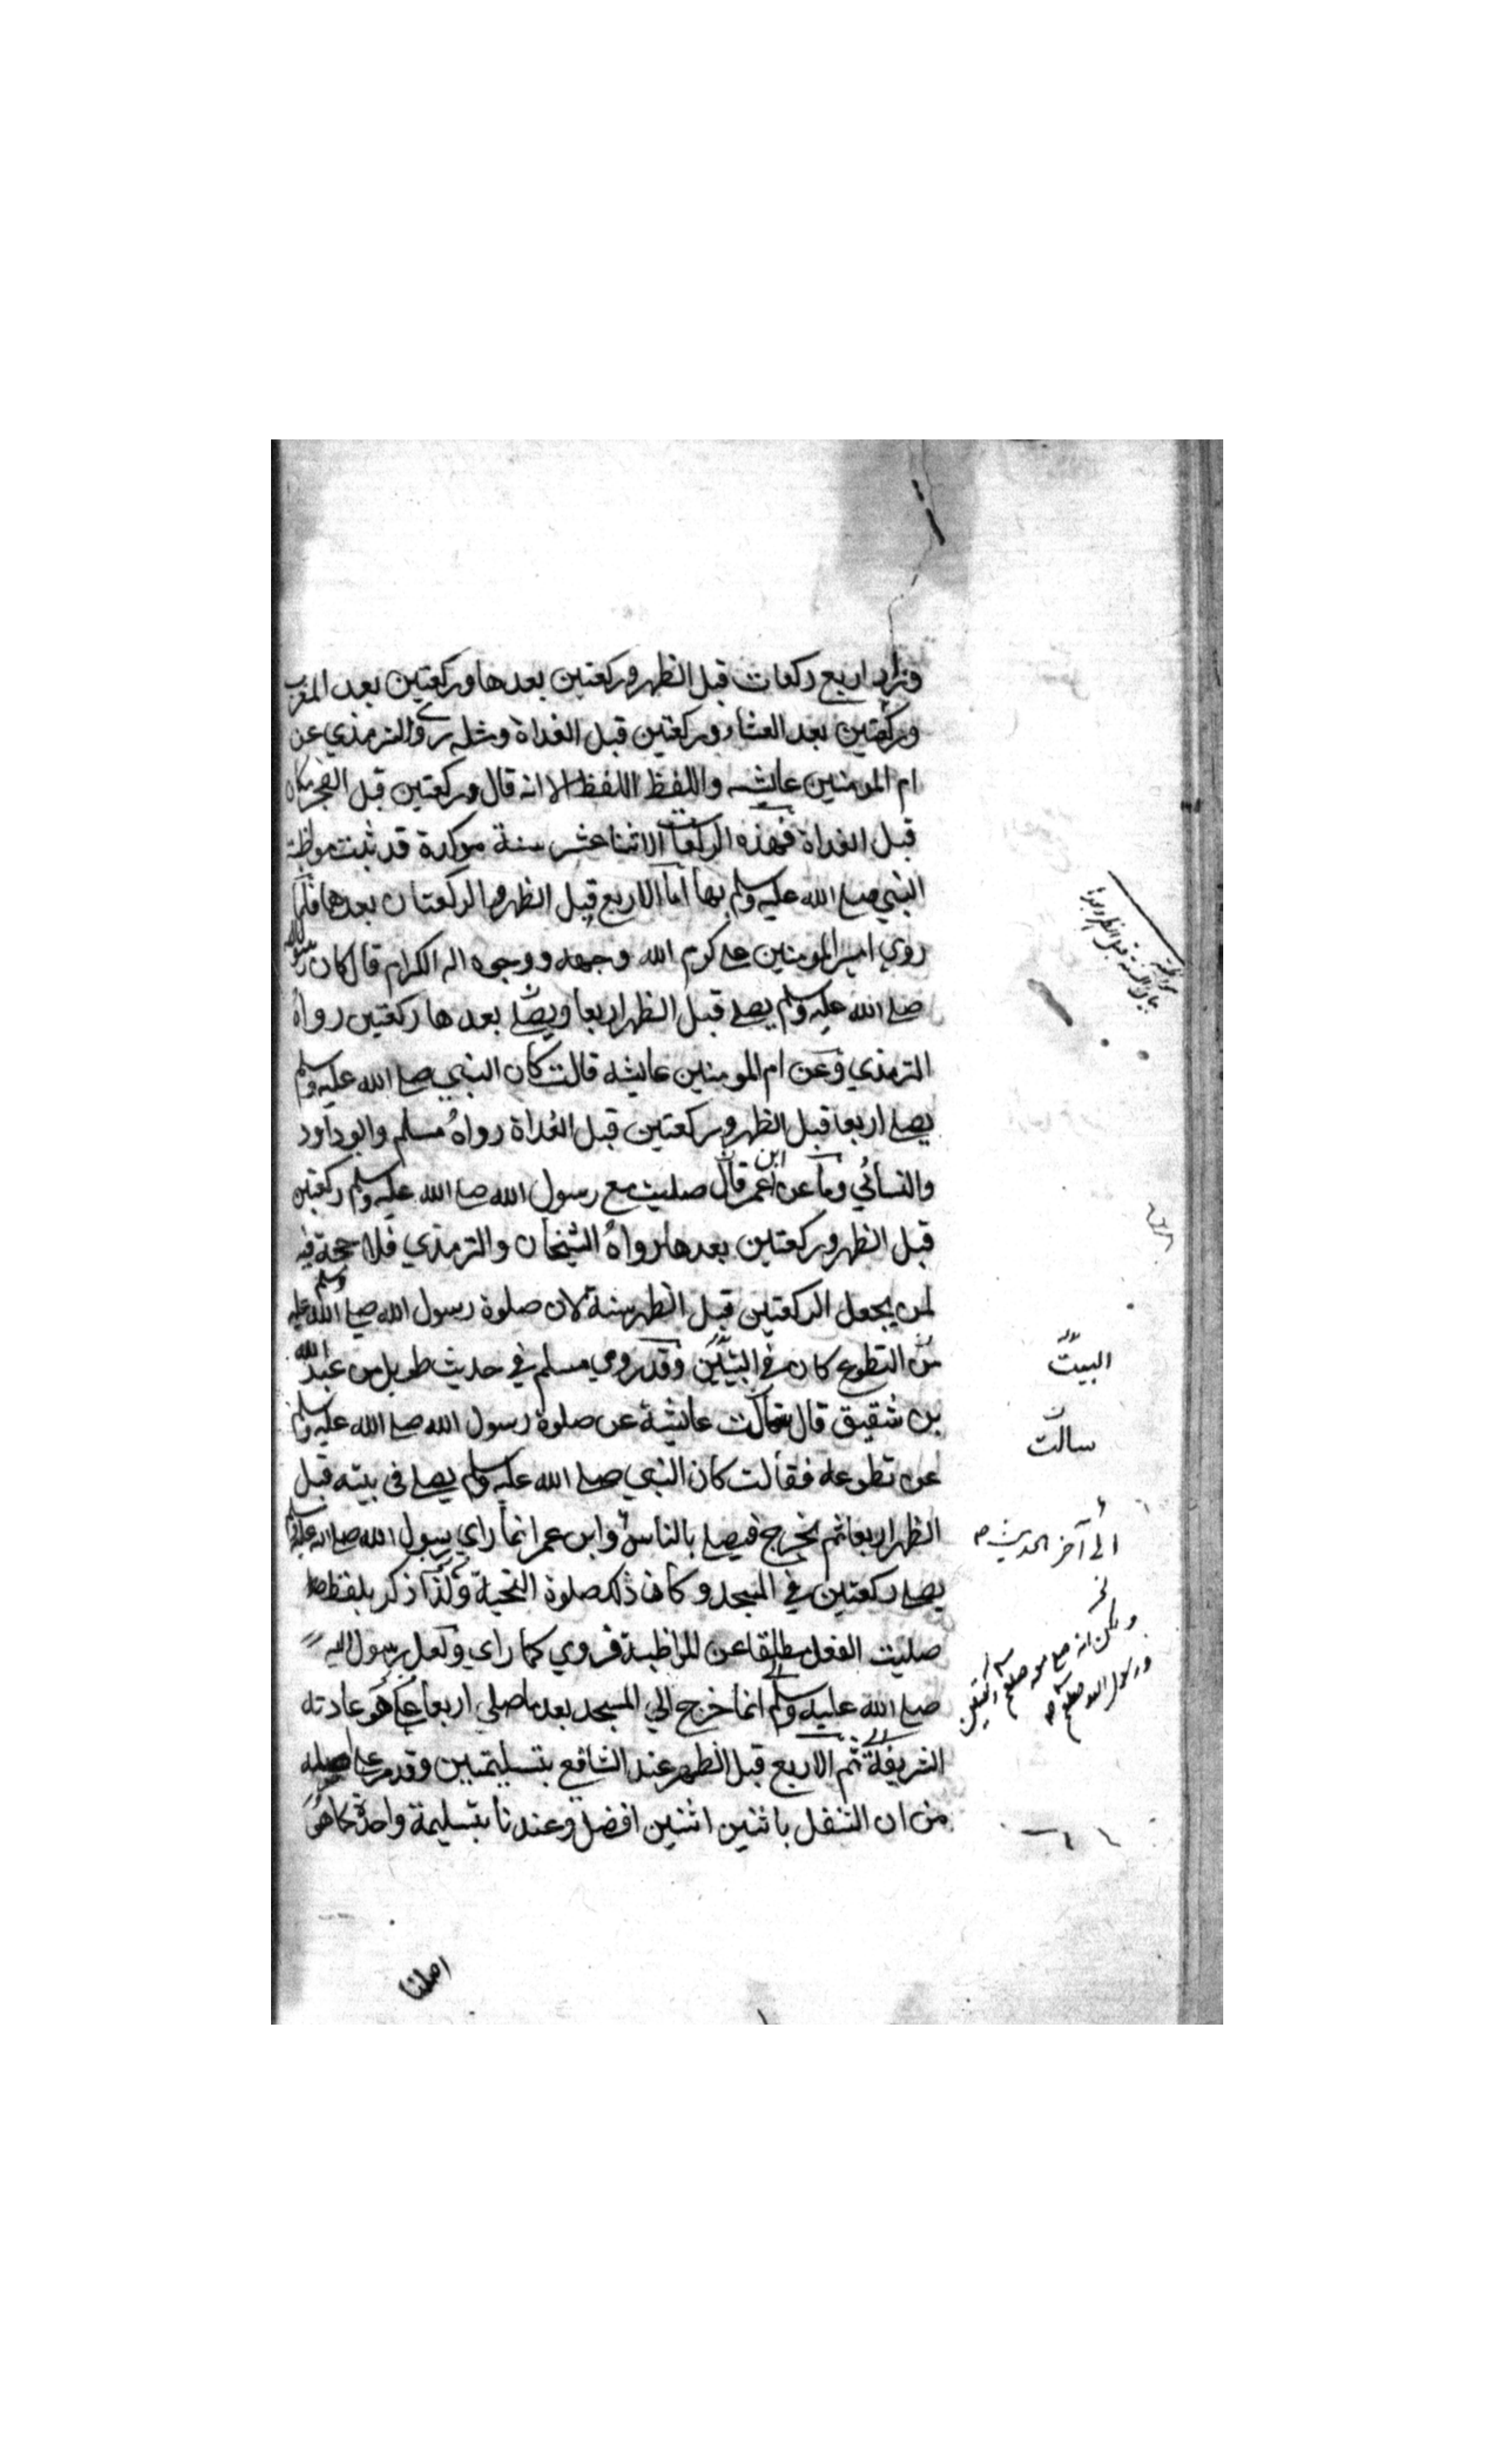 وزاد اربع ركعات قبل الظهر وركعتين بعدها وركعتين بعد المغرب
وركعتين بعد العشاء وركعتين قبل الغداة ومثله روى الترمذي عن
ام المومنين عايشه واللفظ اللفظ الا انه قال وركعتين قبل الفجر مكان
قبل الغداة فهذه الركعات الاثنا عشر سنة موكدة قد ثبت مواظبة
النبي صلى الله عليه وسلم بها اما الاربع قبل الظهر والركعتان بعدها فلما
روي امير المومنين على كرم الله وجهه ووجوه اله الكرام قال كان رسول الله
صلى الله عليه وسلم يصلى قبل الظهر اربعا ويصلى بعدها ركعتين رواه
الترمذي وعن ام المومنين عايشه قالت كان النبي صلى الله عليه وسلم
يصلى اربعا قبل الظهر وركعتين قبل الغداة رواه مسلم وابو داود
والنسائي وما عن ابن عمر قال صليت مع رسول الله صلى الله عليه وسلم ركعتين
قبل الظهر وركعتين بعدها رواه الشيخان والترمذي فلا حجة فيه
لمن يجعل الركعتين قبل الظهر سنة لان صلوة رسول الله صلى الله عليه وسلم
من التطوع كان في البيت وقد روي مسلم في حديث طويل عن عبد الله
بن شقيق قال سالت عايشة عن صلوة رسول الله صلى الله عليه وسلم
عن تطوعه فقالت كان النبي صلى الله عليه وسلم يصلى فى بيته قبل
الظهر اربعا ثم يخرج فيصلى بالناس وابن عمر انما راي رسول الله صلى الله عليه وسلم
يصلى ركعتين في المسجد وكان ذلك صلوة التحية ولذا ذكر بلفظ
صليت الفعل مطلقا عن المواظبة فروي كما راي ولعل رسول الله
صلى الله عليه وسلم انما خرج الي المسجد بعد ما صلى اربعا كما هو عادته
الشريفة ثم الاربع قبل الظهر عند الشافعي بتسليمتين وقد مر على اصله
من ان التنفل باثنين اثنين افضل وعندنا بتسليمة واحدة كما هو
البيت
سالت
الى آخر الحديث
اصلنا